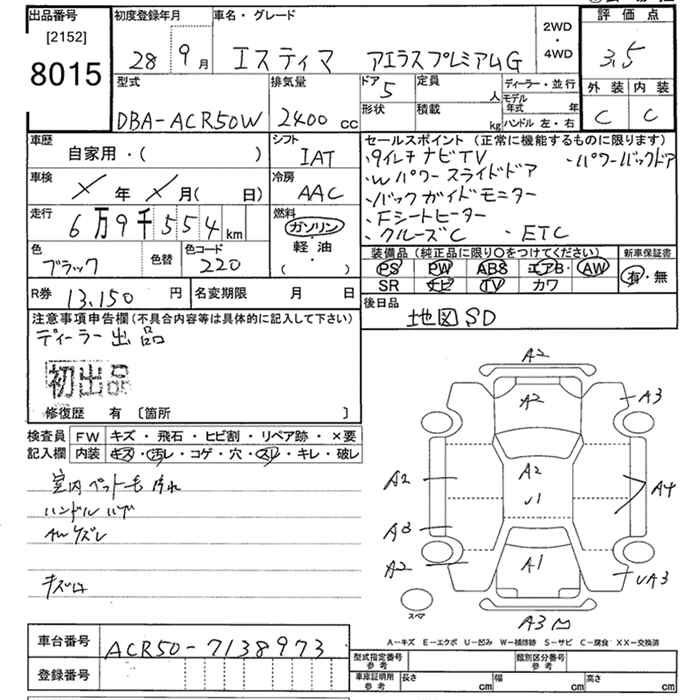 出品番号 初度登録年月 車名・グレード 評価点
[2152]
8015
28 9月 エスティマ アエラスプレミアムG 2WD・4WD 3.5
型式 排気量 ドア 5 定員 人 ディーラー・並行 外装 内装
DBA-ACR50W 2400cc 形状 積載 kg モデル年式 年 C C
ハンドル 左・右
車歴 シフト セールスポイント(正常に機能するものに限ります)
自家用・( ) IAT ・9インチナビTV ・パワーバックドア
・Wパワースライドドア
車検 冷房 ・バックガイドモニター
年 月( 日) AAC ・Fシートヒーター
走行 燃料 ・クルーズC ・ETC
6万9千554km ガソリン・軽油( ・ )
色 色替 色コード 装備品(純正品に限り○をつけてください) 新車保証書
ブラック 220 PS PW ABS エアB AW 有・無
SR ナビ TV カワ
R券 13,150円 名変期限 月 日 後日品
地図SD
注意事項申告欄(不具合内容等は具体的に記入して下さい)
ディーラー出品
初出品
修復歴 有〔箇所 〕
検査員記入欄 FW キズ・飛石・ヒビ割・リペア跡・×要
内装 キズ・汚レ・コゲ・穴・スレ・キレ・破レ
室内ペット毛汚れ
ハンドルハゲ
AWケズレ
A2
A2
A3
A2
A2
U1
A4
A3
A2
A1
UA3
スペア
A3
A-キズ E-エクボ U-凹み W-補修跡 S-サビ C-腐食 XX-交換済
車台番号 ACR50-7138973
登録番号
型式指定番号参考 類別区分番号参考
車庫証明用参考 長さ cm 幅 cm 高さ cm